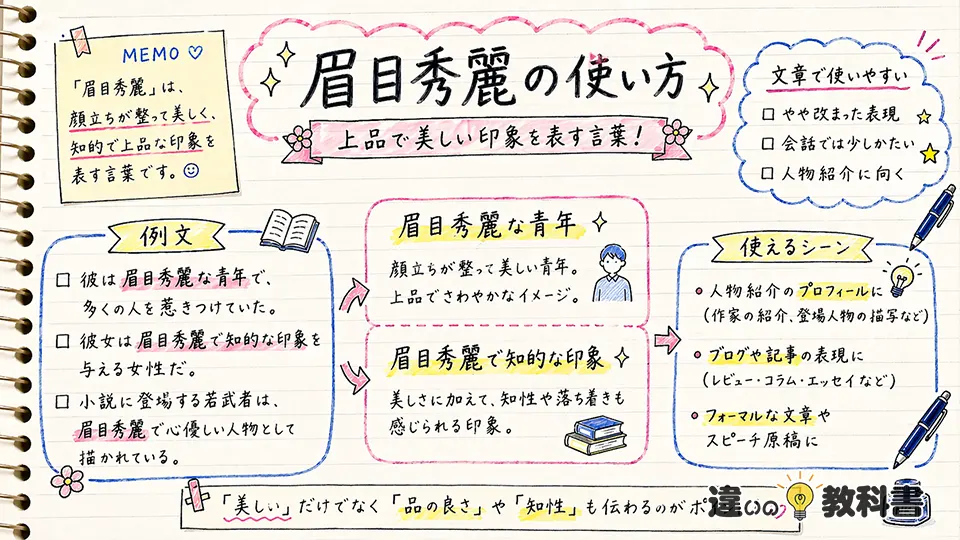 MEMO
「眉目秀麗」は、
顔立ちが整って美しく、
知的で上品な印象を
表す言葉です。
眉目秀麗の使い方
上品で美しい印象を表す言葉!
文章で使いやすい
やや改まった表現
会話では少しかたい
人物紹介に向く
例文
彼は眉目秀麗な青年で、
多くの人を惹きつけていた。
彼女は眉目秀麗で知的な印象を
与える女性だ。
小説に登場する若武者は、
眉目秀麗で心優しい人物として
描かれている。
眉目秀麗な青年
顔立ちが整って美しい青年。
上品でさわやかなイメージ。
眉目秀麗で知的な印象
美しさに加えて、知性や落ち着きも
感じられる印象。
使えるシーン
人物紹介のプロフィールに
(作家の紹介、登場人物の描写など)
ブログや記事の表現に
(レビュー・コラム・エッセイなど)
フォーマルな文章や
スピーチ原稿に
「美しい」だけでなく「品の良さ」や「知性」も伝わるのがポ
違いの教科書